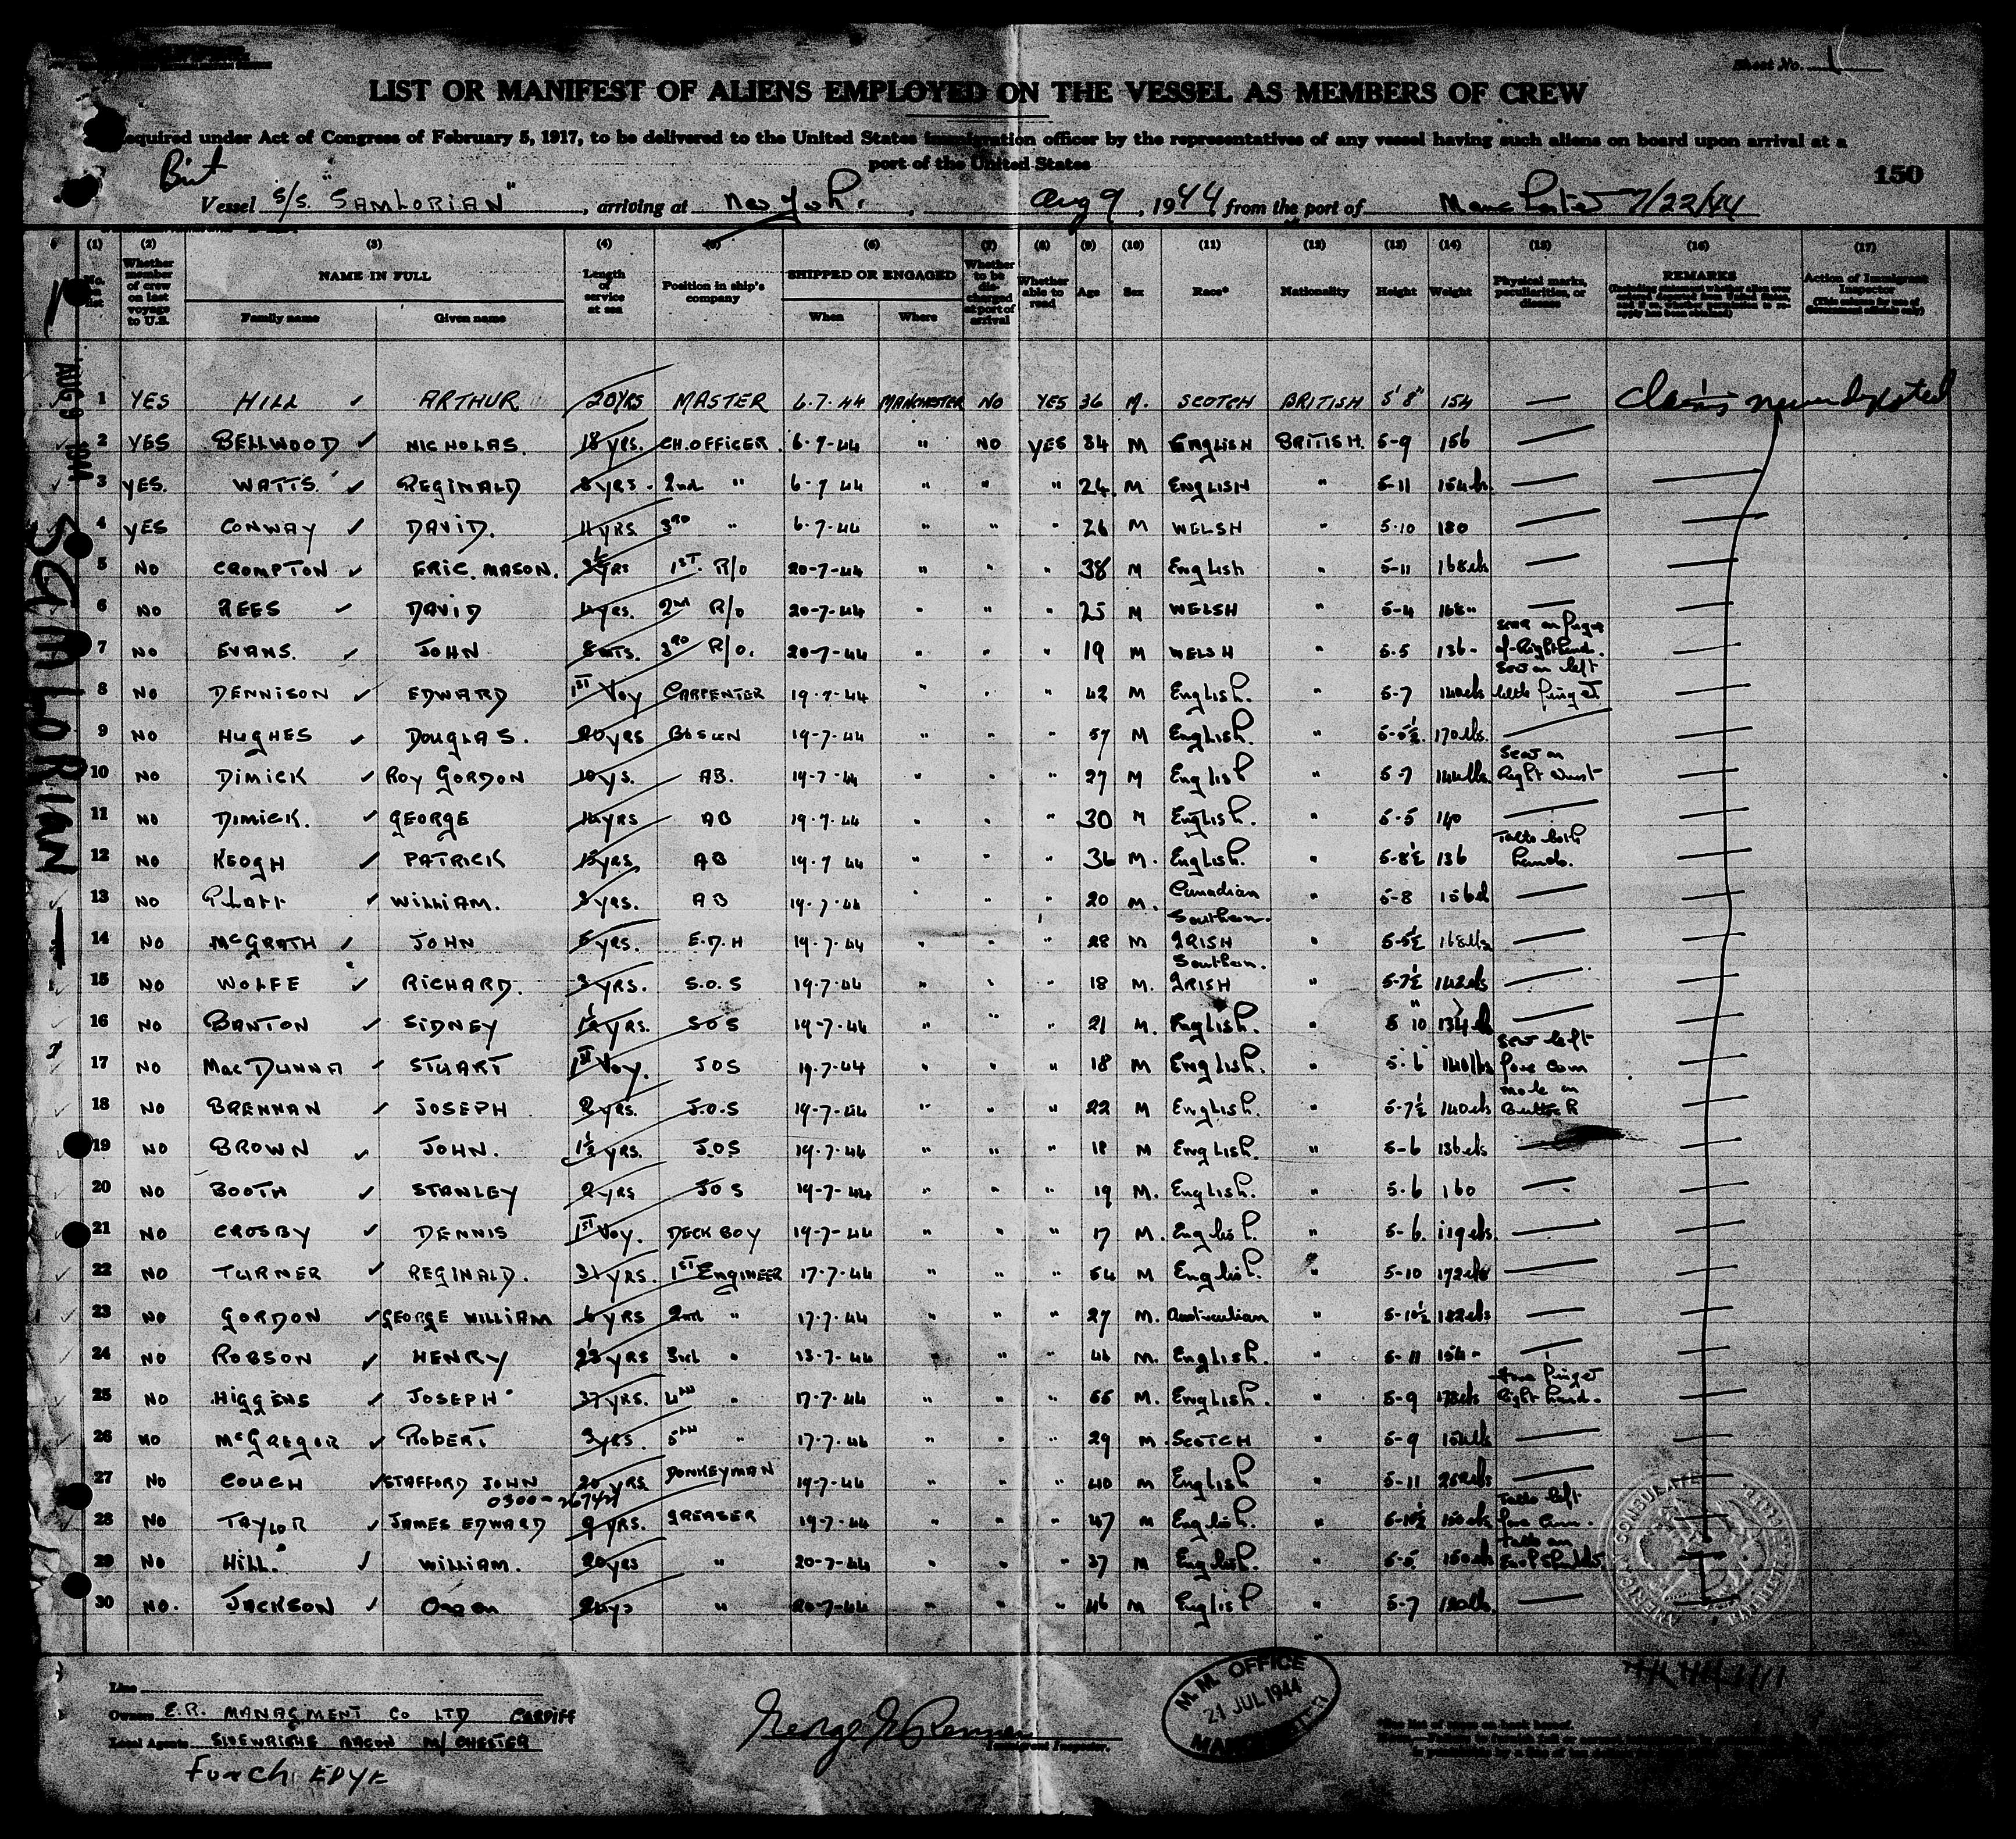 Sheet No. 1
LIST OR MANIFEST OF ALIENS EMPLOYED ON THE VESSEL AS MEMBERS OF CREW
equired under Act of Congress of February 5, 1917, to be delivered to the United States immigration officer by the representatives of any vessel having such aliens on board upon arrival at a
port of the United States
150
Vessel S/S. "SAMLORIAN", arriving at New York, Aug 9, 1944, from the port of Manchester 7/22/44
(1) (2) (3) (4) (5) (6) (7) (8) (9) (10) (11) (12) (13) (14) (15) (16) (17)
No. on list
Whether member of crew on last voyage to U.S.
NAME IN FULL
Family name
Given name
Length of service at sea
Position in ship's company
SHIPPED OR ENGAGED
When
Where
Whether to be discharged at port of arrival
Whether able to read
Age
Sex
Race*
Nationality
Height
Weight
Physical marks, peculiarities, or disease
REMARKS
Action of Immigrant Inspector
AUG 9 1944
SAMLORIAN
1 YES HILL ARTHUR 20YRS MASTER 6.7.44 MANCHESTER NO YES 36 M. SCOTCH BRITISH 5'8" 154 — Claims never deported
2 YES BELLWOOD NICHOLAS. 18 yrs. CH.OFFICER 6-7-44 " NO YES 34 M ENGLISH BRITISH. 5-9 156 —
3 YES. WATTS REGINALD 8 YRS. 2nd " 6-7 44 " " " 24 M ENGLISH " 5-11 154 lbs. —
4 YES CONWAY DAVID. 11 YRS 3RD " 6-7-44 " " " 26 M WELSH " 5-10 180 —
5 NO CROMPTON ERIC. MASON. YRS 1ST. R/O 20-7-44 " " " 38 M English " 5-11 168lbs —
6 NO REES DAVID yrs. 2nd R/O 20-7-44 " " " 25 M WELSH " 5-4 168" —
7 NO EVANS. JOHN 8 MTS. 3RD R/O. 20-7-44 " " " 19 M WELSH " 5.5 136" Scar on finger of Right hand.
8 NO DENNISON EDWARD 1ST Voy CARPENTER 19-7-44 " " " 42 M English. " 5-7 140lbs Scar on left little finger
9 NO HUGHES DOUGLAS. 20 yrs BOSUN 19-7-44 " " " 57 M English. " 5-5½. 170lbs. —
10 NO DIMICK ROY GORDON 10 ys. AB. 19-7-44 " " " 27 M English " 5-7 144lbs. Scar on Right wrist
11 NO DIMICK. GEORGE 14 YRS AB 19-7-44 " " " 30 M English. " 5-5 140 —
12 NO KEOGH PATRICK 15 YRS. AB 19-7 44 " " " 36 M. English. " 5-8½ 136 Tatto both hands.
13 NO WILLIAM. 3 yrs. AB 19-7-44 " " 20 M. Canadian " 5-8 156 —
14 NO McGRATH JOHN 5 YRS. E.D.H 19-7-44 " " " 28 M Southern. IRISH " 5-5½ 168lbs —
15 NO WOLFE RICHARD. 3 YRS. S.O.S 19.7.44 " " " 18 M. Southern. IRISH " 5-7½ 142lbs —
16 NO BANTON SIDNEY 1½ YRS. SOS 19-7-44 " " " 21 M. English. " 5 10 134 lb —
17 NO MacDUNNA STUART 1ST Voy. JOS 19.7-44 " " " 18 M English. " 5.6 140lbs Scar left fore arm
18 NO BRENNAN JOSEPH 2 yrs. J.O.S 19-7-44 " " " 22 M English. " 5-7½ 140lbs mole on
19 NO BROWN JOHN. 1½ YRS. J.O.S 19.7-44 " " " 18 M English. " 5-6 136lbs —
20 NO BOOTH STANLEY 2 yrs JOS 19-7-44 " " " 19 M. English. " 5.6 160 —
21 NO CROSBY DENNIS 1ST Voy. DECK BOY 19-7-44 " " " 17 M. English. " 5-6. 119lbs. —
22 NO TURNER REGINALD. 31 YRS. 1ST ENGINEER 17-7-44 " " " 54 M English. " 5-10 172lbs —
23 NO GORDON GEORGE WILLIAM 6 YRS 2nd " 17.7.44 " " " 27 M. Australian " 5-10½ 182lbs —
24 NO ROBSON HENRY YRS 3rd " 13-7-44 " " 44 M. English. " 5-11 154" —
25 NO HIGGENS JOSEPH 37 YRS. 4TH " 17.7-44 " " " 55 M. English. " 5-9 178lbs finger Right hand.
26 NO McGREGOR ROBERT 3 YRS. 5TH " 17.7-44 " " " 29 M. SCOTCH " 5-9 154lb —
27 NO COUCH STAFFORD JOHN 20 YRS. DONKEYMAN 19-7-44 " " " 40 M English " 5-11 252lbs —
0300-26742
28 NO TAYLOR JAMES EDWARD 9 YRS. GREASER 19-7-44 " " " 47 M English. " 5-10½ 150lbs Tatto left fore arm.
29 NO HILL. WILLIAM. 20 yrs " 20-7-44 " " " 37 M English. " 5-5 150lb Tatto on shoulder
30 NO. JACKSON 2 " 20.7-44 " " " 46 M English " 5-7 120lb. —
AMERICAN CONSULATE
Line
Owners E.R. MANAGMENT Co LTD CARDIFF
Local Agents M/CHESTER
FUNCH EDYE
Immigrant Inspector.
M. M. OFFICE
21 JUL 1944